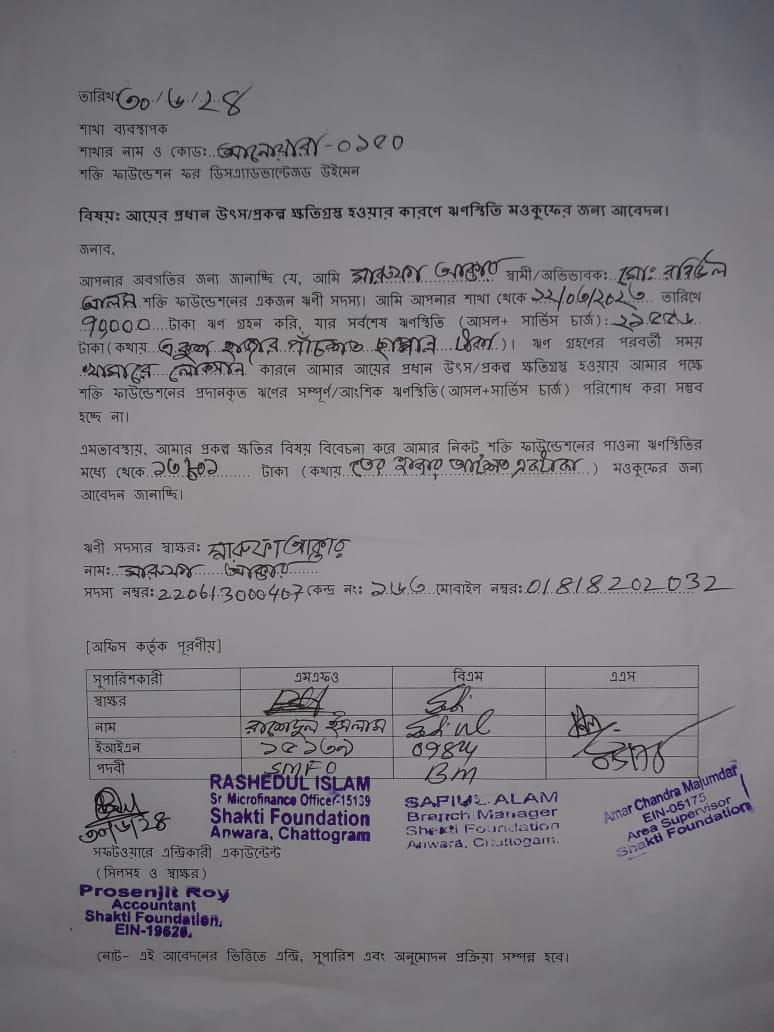 তারিখঃ ৩০/৬/২৪
শাখা ব্যবস্থাপক
শাখার নাম ও কোডঃ..আনোয়ারা-০১৫০
শক্তি ফাউন্ডেশন ফর ডিসএ্যাডভান্টেজড উইমেন
বিষয়ঃ আয়ের প্রধান উৎস/প্রকল্প ক্ষতিগ্রস্ত হওয়ার কারণে ঋণস্থিতি মওকুফের জন্য আবেদন।
জনাব,
আপনার অবগতির জন্য জানাচ্ছি যে, আমি মারুফা আক্তার স্বামী/অভিভাবক: মোঃ
আলম শক্তি ফাউন্ডেশনের একজন ঋণী সদস্য। আমি আপনার শাখা থেকে তারিখে
টাকা ঋণ গ্রহন করি, যার সর্বশেষ ঋণস্থিতি (আসল+ সার্ভিস চার্জ): ২১৫৫৬
টাকা(কথায় একুশ হাজার পাঁচশত ছাপ্পান্ন টাকা)। ঋণ গ্রহণের পরবর্তী সময়
খামারে লোকসান কারনে আমার আয়ের প্রধান উৎস/প্রকল্প ক্ষতিগ্রস্ত হওয়ায় আমার পক্ষে
শক্তি ফাউন্ডেশনের প্রদানকৃত ঋণের সম্পূর্ণ/আংশিক ঋণস্থিতি(আসল+সার্ভিস চার্জ) পরিশোধ করা সম্ভব
হচ্ছে না।
এমতাবস্থায়, আমার প্রকল্প ক্ষতির বিষয় বিবেচনা করে আমার নিকট শক্তি ফাউন্ডেশনের পাওনা ঋণস্থিতির
মধ্যে থেকে ১৩৮০১ টাকা (কথায় তের হাজার আটশত একটাকা) মওকুফের জন্য
আবেদন জানাচ্ছি।
ঋণী সদস্যের স্বাক্ষর: মারুফা আক্তার
নাম: মারুফা আক্তার
সদস্য নম্বর: 220613000407 কেন্দ্র নং: ১৬৩ মোবাইল নম্বর: 01818202032
[অফিস কর্তৃক পূরণীয়]
সুপারিশকারী এমএফও বিএম এএস
স্বাক্ষর
নাম রাশেদুল ইসলাম
ইআইএন ১৫১৩৯
পদবী SMFO BM
RASHEDUL ISLAM
Sr Microfinance Officer-15139
Shakti Foundation
Anwara, Chattogram
SAPIUL ALAM
Branch Manager
Shakti Foundation
Anwara, Chattogam.
Amar Chandra Majumdar
EIN-05175
Area Supervisor
Shakti Foundation
৩০/৬/২৪
সফটওয়ারে এন্ট্রিকারী একাউন্টেন্ট
(সিলসহ ও স্বাক্ষর)
Prosenjit Roy
Accountant
Shakti Foundation,
EIN-19628.
নোট- এই আবেদনের ভিত্তিতে এন্ট্রি, সুপারিশ এবং অনুমোদন প্রক্রিয়া সম্পন্ন হবে।